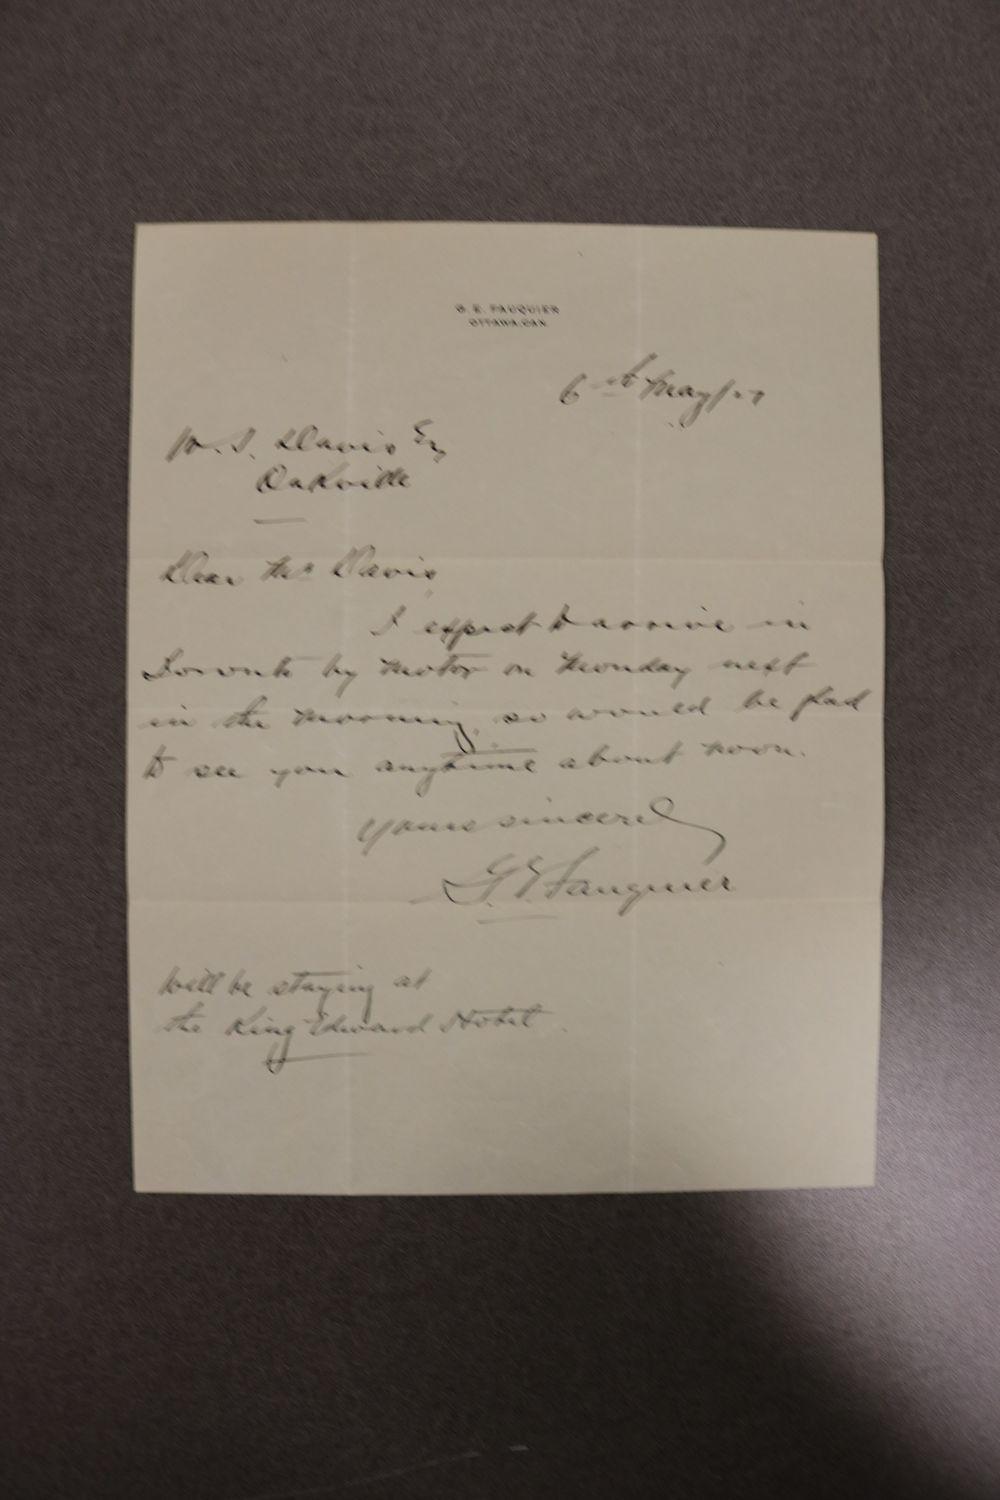 G. E. FAUQUIER
OTTAWA, CAN.
6th May/27
W. S. Davis Esq
Oakville
Dear Mr Davis
I expect to arrive in
Toronto by motor on Monday next
in the morning, so would be glad
to see you anytime about noon.
Yours sincerely
G. E. Fauquier
Will be staying at
the King Edward Hotel.